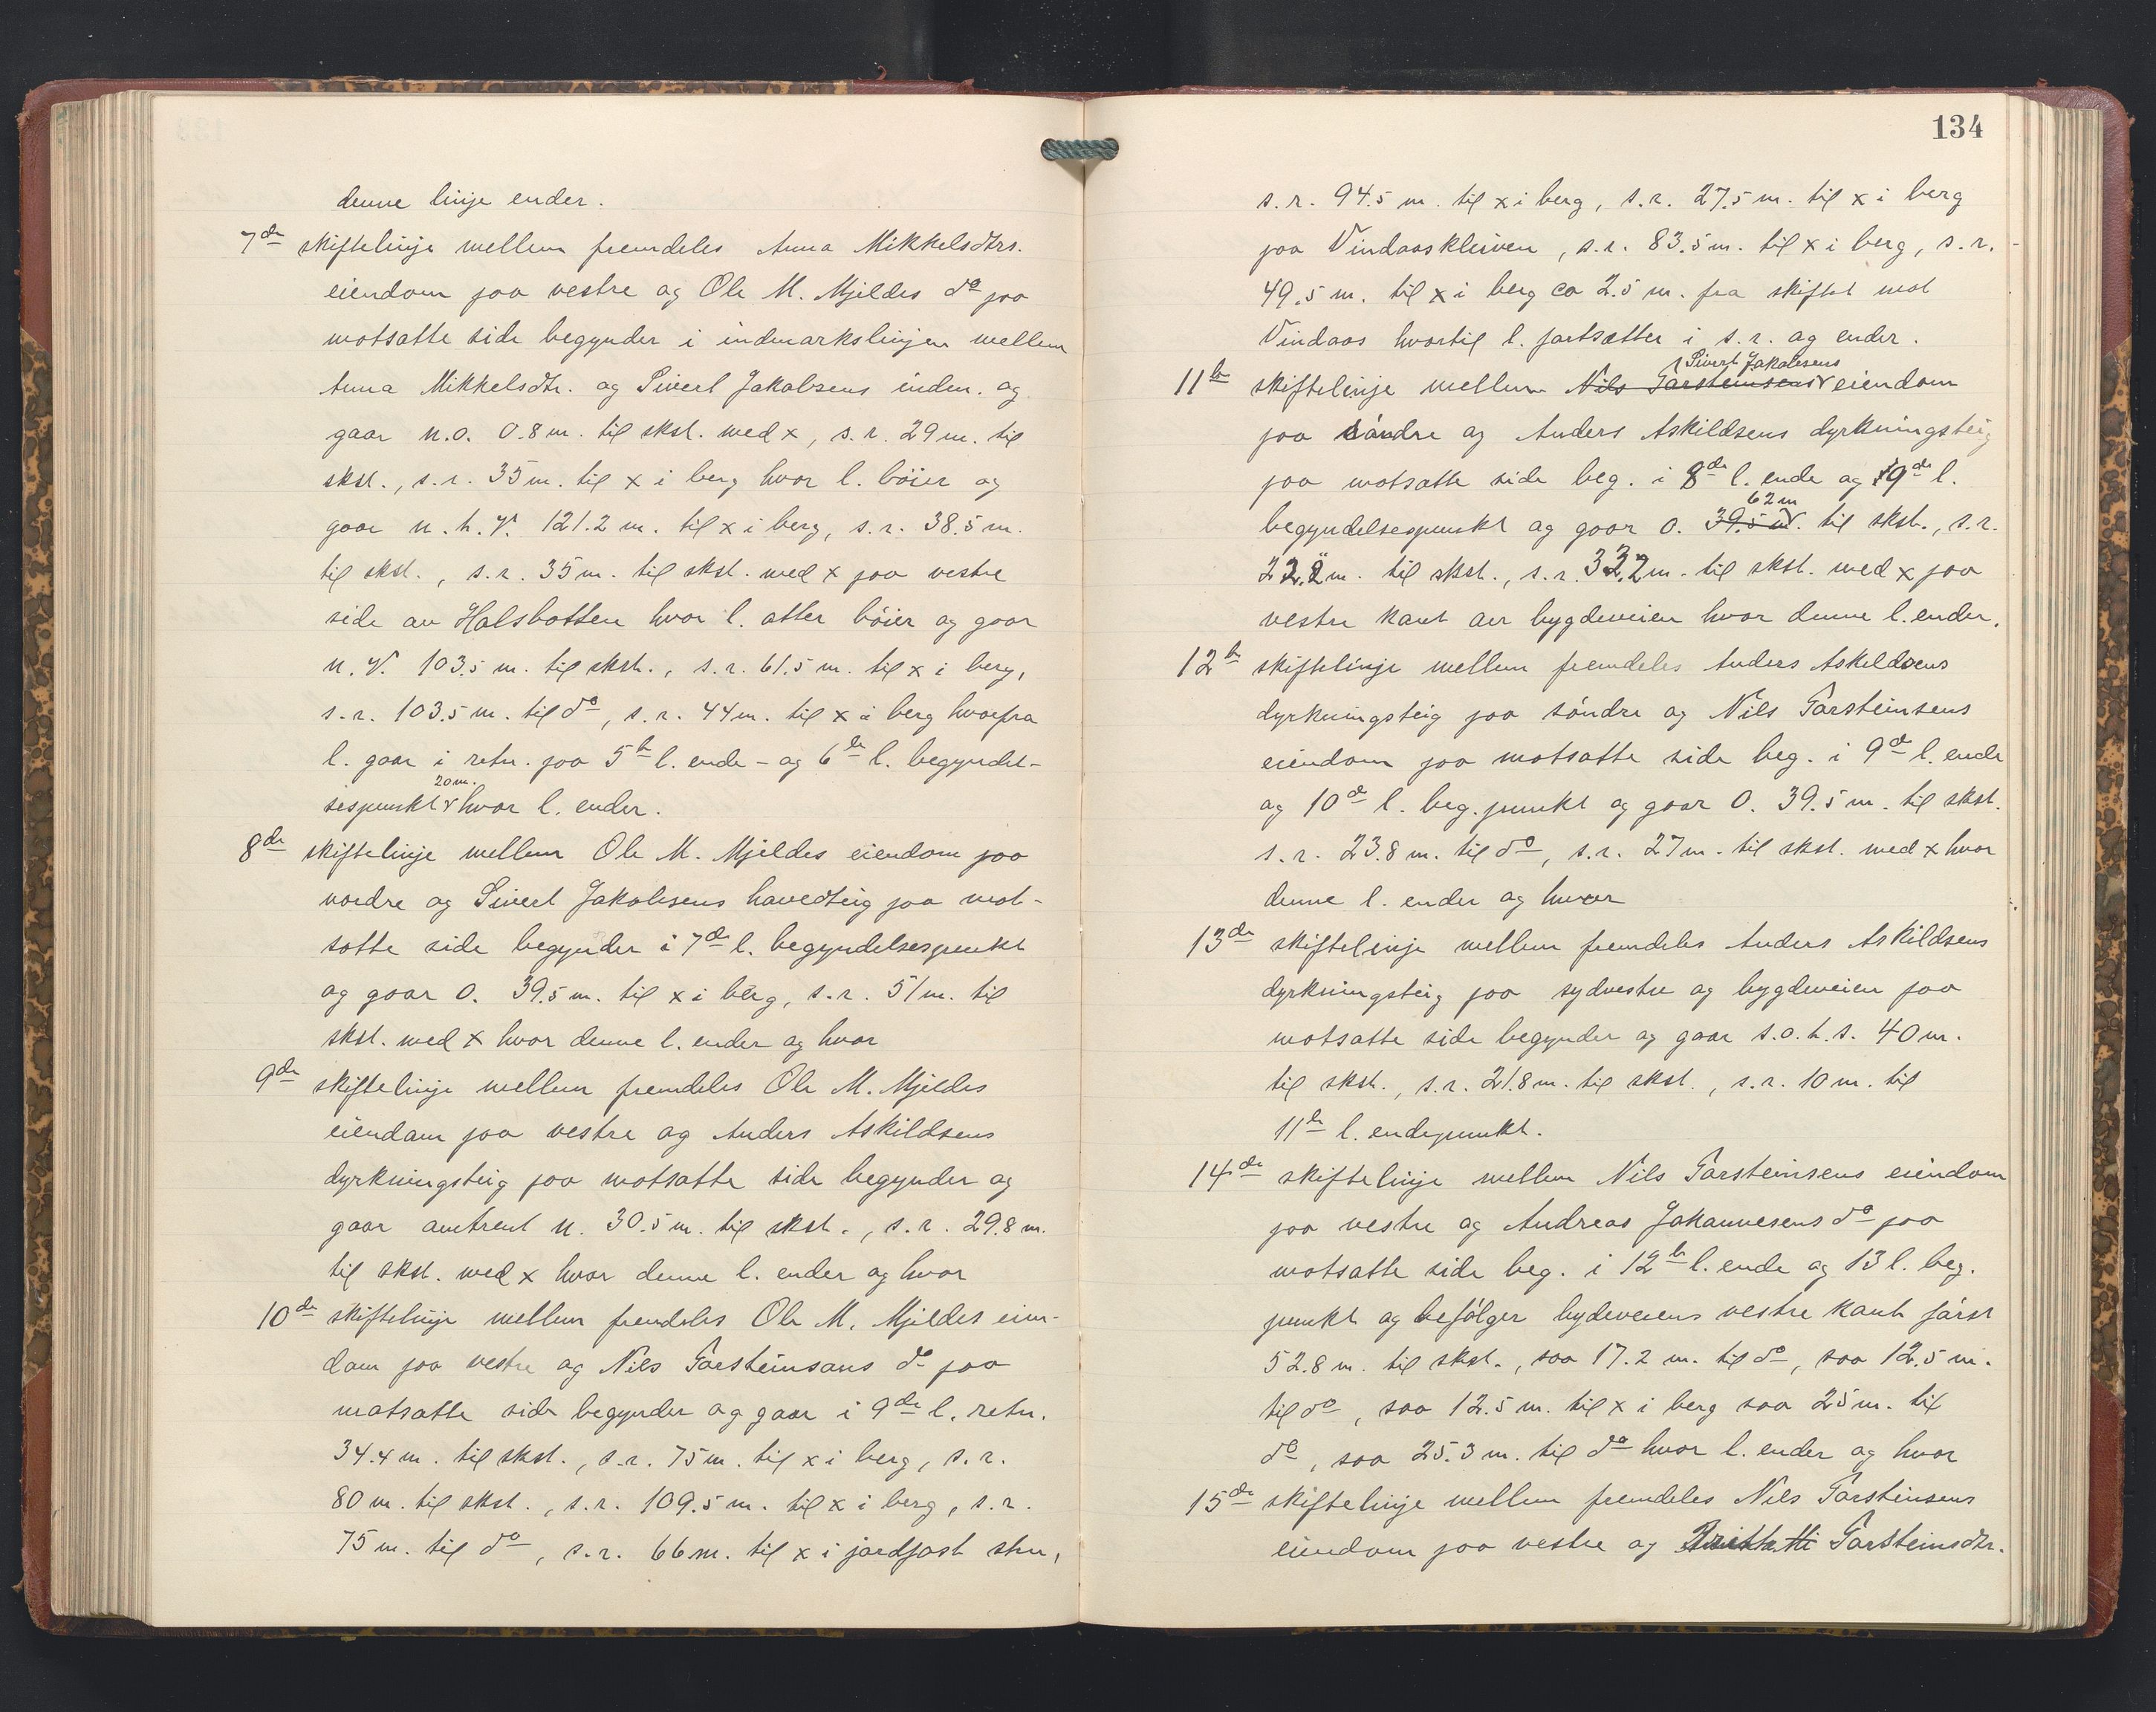 denne linje ender.
7de skiftelinje mellem fremdeles Anna Mikkelsdtrs.
eiendom paa vestre og Ole M. Mjeldes do paa
motsatte side begynder i indmarkslinjen mellem
Anna Mikkelsdtr. og Sivert Jakobsens eindm. og
gaar n.o. 0.8 m. til skst. med x, s.r. 29 m. til
skst., s.r. 35 m. til x i berg hvor l. böier og
gaar n.t.v. 121.2 m. til x i berg, s.r. 38.5 m.
til skst., s.r. 35 m. til skst. med x paa vestre
side av Halsbotten hvor l. atter böier og gaar
n.v. 103.5 m. til skst., s.r. 61.5 m. til x i berg,
s.r. 103.5 m. til do, s.r. 44 m. til x i berg hvorfra
l. gaar i retn. paa 5te l. ende- og 6te l. begyndel-
20 m.
sespunkt v hvor l. ender.
8de skiftelinje mellem Ole M. Mjeldes eiendom paa
nordre og Sivert Jakobsens havedteig paa mot-
satte side begynder i 7de l. begyndelsespunkt
og gaar o. 39.5 m. til x i berg, s.r. 51 m. til
skst. med x hvor denne l. ender og hvor
9de skiftelinje mellem fremdeles Ole M. Mjeldes
eiendom paa vestre og Anders Askildsens
dyrkningsteig paa motsatte side begynder og
gaar omtrent n. 30.5 m. til skst., s.r. 29.8 m.
til skst. med x hvor denne l. ender og hvor
10de skiftelinje mellem fremdeles Ole M. Mjeldes eien-
dom paa vestre og Nils Torsteinsens do paa
motsatte side begynder og gaar i 9de l. retn.
34.4 m. til skst., s.r. 75 m. til x i berg, s.r.
80 m. til skst., s.r. 109.5 m. til x i berg, s.r.
75 m. til do, s.r. 66 m. til x i jordfast sten,
134
s.r. 94.5 m. til x i berg, s.r. 27.5 m. til x i berg
paa Vindaaskleiven, s.r. 83.5 m. til x i berg, s.r.
49.5 m. til x i berg ca 2.5 m. fra skiftet mot
Vindaas hvortil l. fortsætter i s.r. og ender.
Sivert Jakobsens
11te skiftelinje mellem Nils Torsteinsens v eiendom
paa söndre og Anders Askildsens dyrkningsteig
paa motsatte side beg. i 8de l. ende og 9de l.
62 m
begyndelsespunkt og gaar o. 39.5 m v. til skst., s.r.
22.2 m. til skst., s.r. 33.2 m. til skst. med x paa
vestre kant av bygdeveien hvor denne l. ender.
12te skiftelinje mellem fremdeles Anders Askeldsens
dyrkningsteig paa söndre og Nils Torsteinsens
eiendom paa motsatte side beg. i 9de l. ende
og 10de l. beg. punkt og gaar o. 39.5 m. til skst.
s.r. 23.8 m. til do, s.r. 27 m. til skst. med x hvor
denne l. ender og hvor
13de skiftelinje mellem fremdeles Anders Askildsens
dyrkningsteig paa sydvestre og bygdeveien paa
motsatte side begynder og gaar s.o.t.s. 40 m.
til skst., s.r. 21.8 m. til skst., s.r. 10 m. til
11te l. endepunkt.
14de skiftelinje mellem Nils Torsteinsens eiendom
paa vestre og Andreas Johannesens do paa
motsatte side beg. i 12te l. ende og 13 l. beg.
punkt og befölger bydeveiens vestre kant först
52.8 m. til skst., saa 17.2 m. til do, saa 12.5 m.
til do, saa 12.5 m. til x i berg saa 25 m. til
do, saa 25.3 m. til do hvor l. ender og hvor
15de skiftelinje mellem fremdeles Nils Torsteinsens
eiendom paa vestre og Torsteinsdtr.